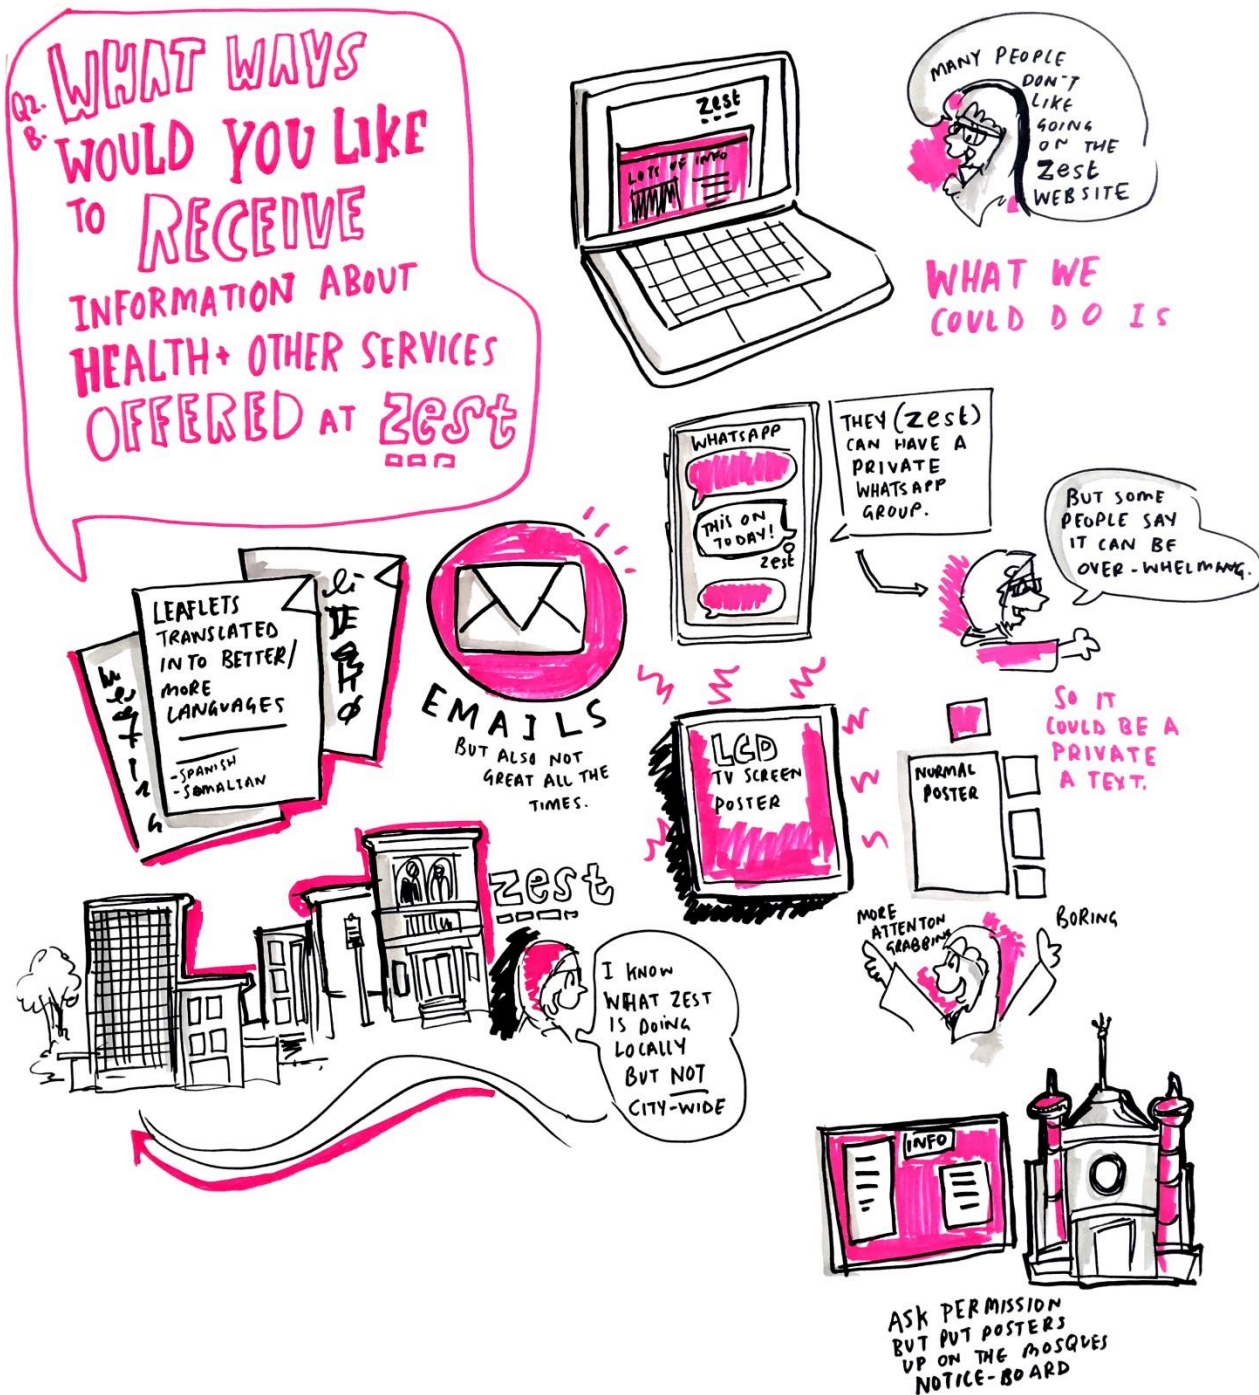 Q2.
B.
WHAT WAYS
WOULD YOU LIKE
TO RECEIVE
INFORMATION ABOUT
HEALTH + OTHER SERVICES
OFFERED AT Zest
Zest
LOTS OF INFO
MANY PEOPLE
DON'T
LIKE
GOING
ON THE
Zest
WEBSITE
WHAT WE
COULD DO IS
WHATSAPP
THIS ON
TODAY!
Zest
THEY (Zest)
CAN HAVE A
PRIVATE
WHATSAPP
GROUP.
BUT SOME
PEOPLE SAY
IT CAN BE
OVER-WHELMANG.
SO IT
COULD BE A
PRIVATE
A TEXT.
LEAFLETS
TRANSLATED
INTO BETTER/
MORE
LANGUAGES
-SPANISH
-SOMALIAN
EMAILS
BUT ALSO NOT
GREAT ALL THE
TIMES.
LCD
TV SCREEN
POSTER
NORMAL
POSTER
MORE
ATTENTON
GRABBING
BORING
Zest
I KNOW
WHAT ZEST
IS DOING
LOCALLY
BUT NOT
CITY-WIDE
INFO
ASK PERMISSION
BUT PUT POSTERS
UP ON THE MOSQUES
NOTICE-BOARD